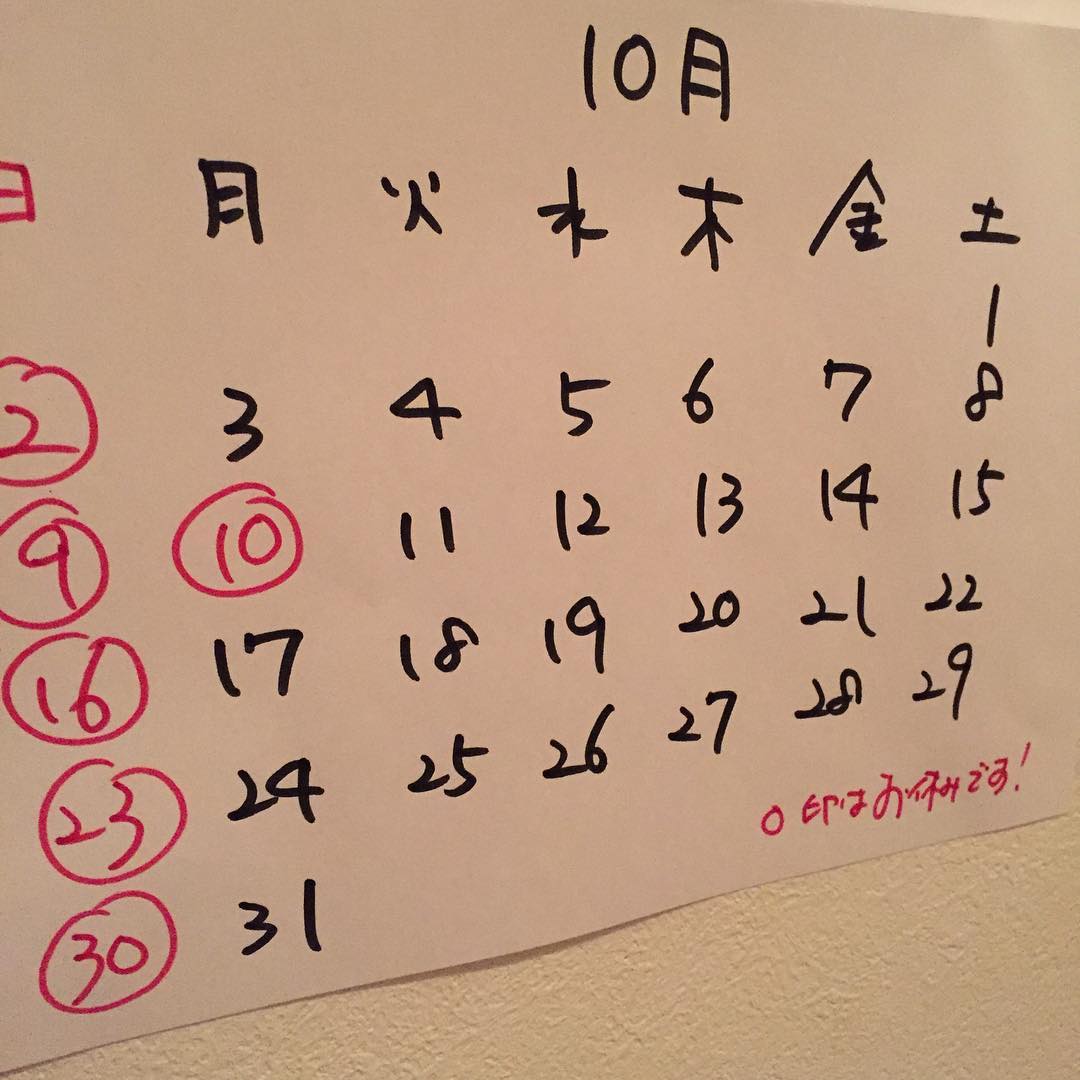 10月
日 月 火 水 木 金 土
1
2 3 4 5 6 7 8
9 10 11 12 13 14 15
16 17 18 19 20 21 22
23 24 25 26 27 28 29
30 31
○印はお休みです!